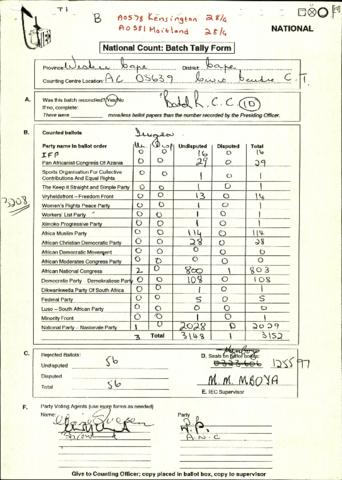 T1
B A0578 Kensington 28/4
A0581 Maitland 28/4
NATIONAL
National Count: Batch Tally Form
Province Western Cape District Cape
Counting Centre Location: AC 05639 Civic Centre C.T.
A. Was this batch reconciled? Yes/No Batch R.C.C. 10
If no, complete:
There were more/less ballot papers than the number recorded by the Presiding Officer.
B. Counted ballots
Party name in ballot order Undisputed Disputed Total
IFP 0 0 16 0 16
Pan Africanist Congress Of Azania 0 0 29 0 29
Sports Organisation For Collective
Contributions And Equal Rights 1 0 1
The Keep It Straight and Simple Party 0 0 1 0 1
Vryheidsfront – Freedom Front 0 0 13 0 14
Women's Rights Peace Party 0 0 1 0 1
Workers' List Party 0 0 1 0 1
Ximoko Progressive Party 0 0 1 0 1
Africa Muslim Party 0 0 114 0 114
African Christian Democratic Party 0 0 28 0 28
African Democratic Movement 0 0 0 0 0
African Moderates Congress Party 0 0 0 0 0
African National Congress 2 0 800 1 803
Democratic Party - Demokratiese Party 0 0 108 0 108
Dikwankwetla Party Of South Africa 0 0 1 0 1
Federal Party 0 0 5 0 5
Luso – South African Party 0 0 0 0 0
Minority Front 0 0 1 0 1
National Party – Nasionale Party 1 0 2028 0 2029
3 Total 3148 1 3152
C. Rejected Ballots:
Undisputed 56
Disputed
Total 56
D. Seals on ballot boxes:
125597
M. M. MBOYA
E. IEC Supervisor
F. Party Voting Agents (use more forms as needed)
Name: Party
N.P.
A.N.C
Give to Counting Officer; copy placed in ballot box, copy to supervisor